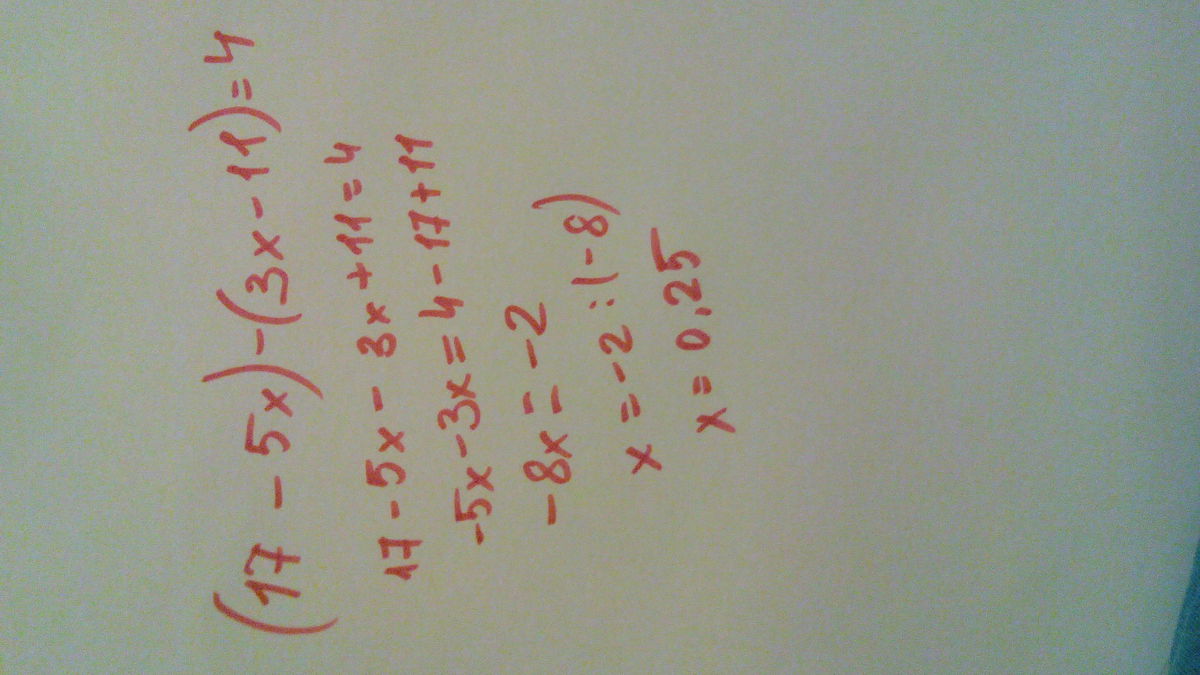 (17 - 5x) - (3x - 11) = 4
17 - 5x - 3x + 11 = 4
-5x - 3x = 4 - 17 + 11
-8x = -2
x = -2 : (-8)
x = 0,25